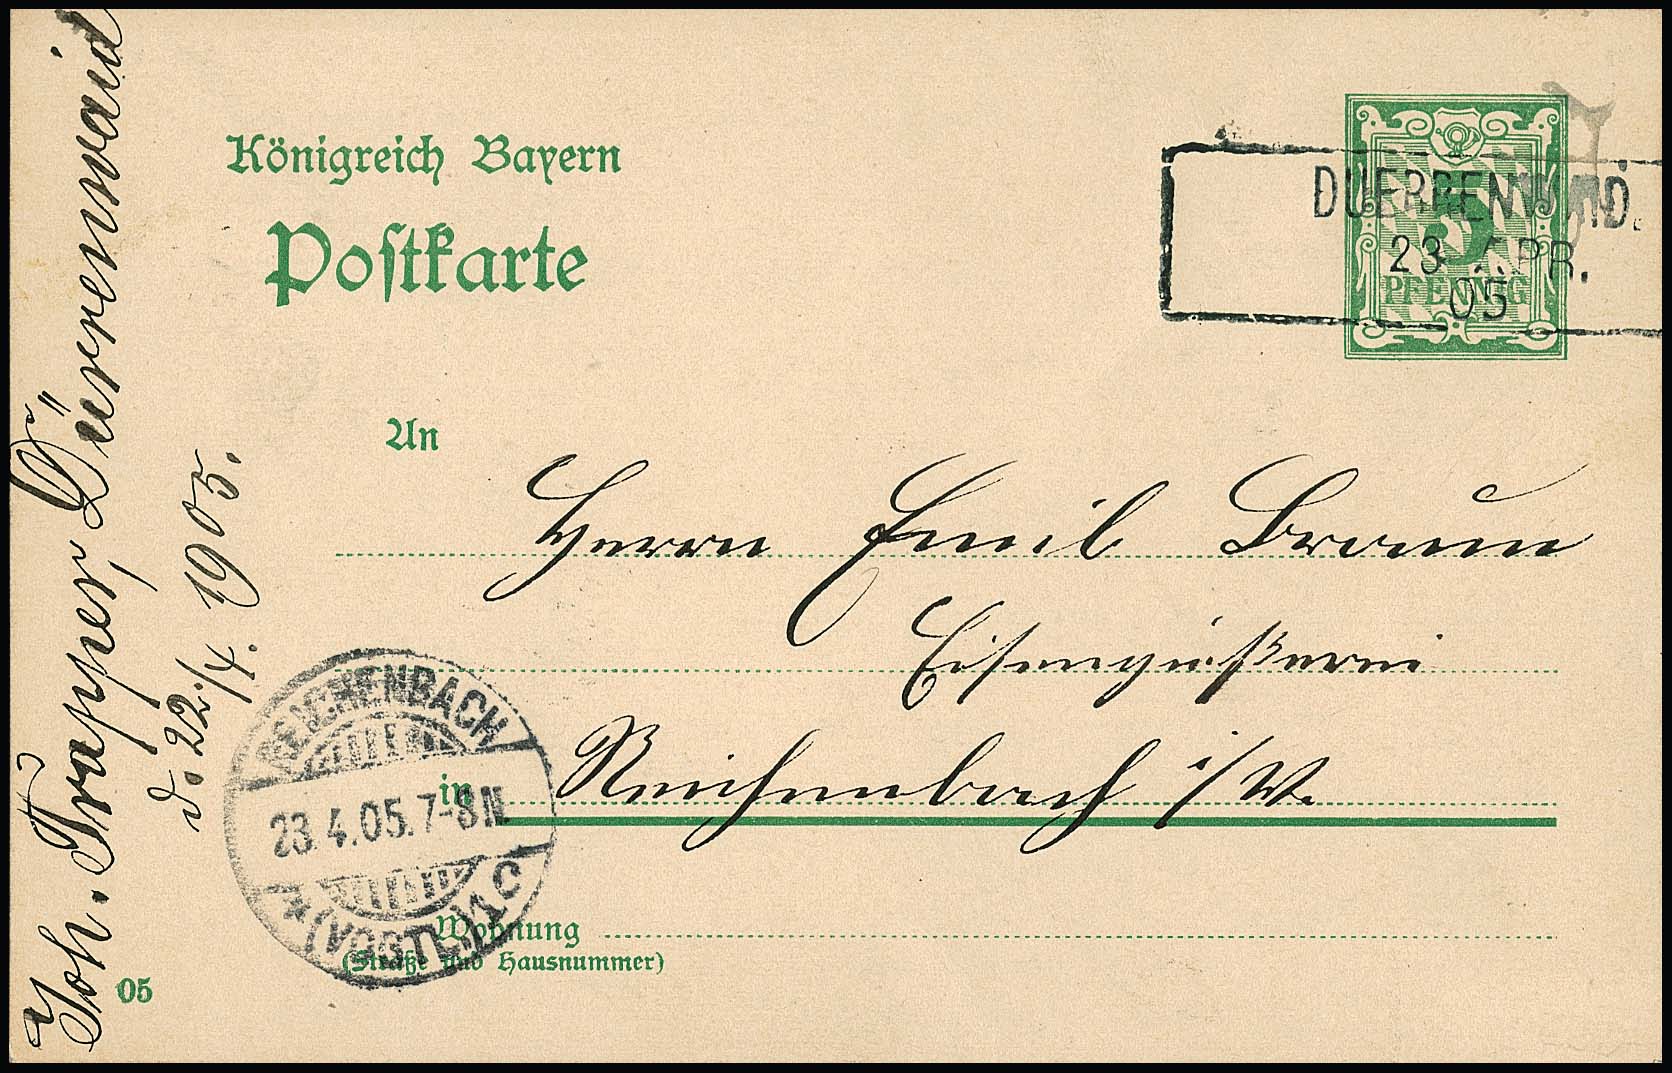 Königreich Bayern
Postkarte
DUERRENWAID.
23 APR.
05
5
PFENNIG
An
Herrn Emil Braun
Eisengießerei
in Reichenbach i/V.
Wohnung
(Straße und Hausnummer)
05
Joh. Trapper, Dürrenwaid
d. 22./4. 1905.
REICHENBACH
23.4.05.7-8 N.
(VOGTL.) 1c